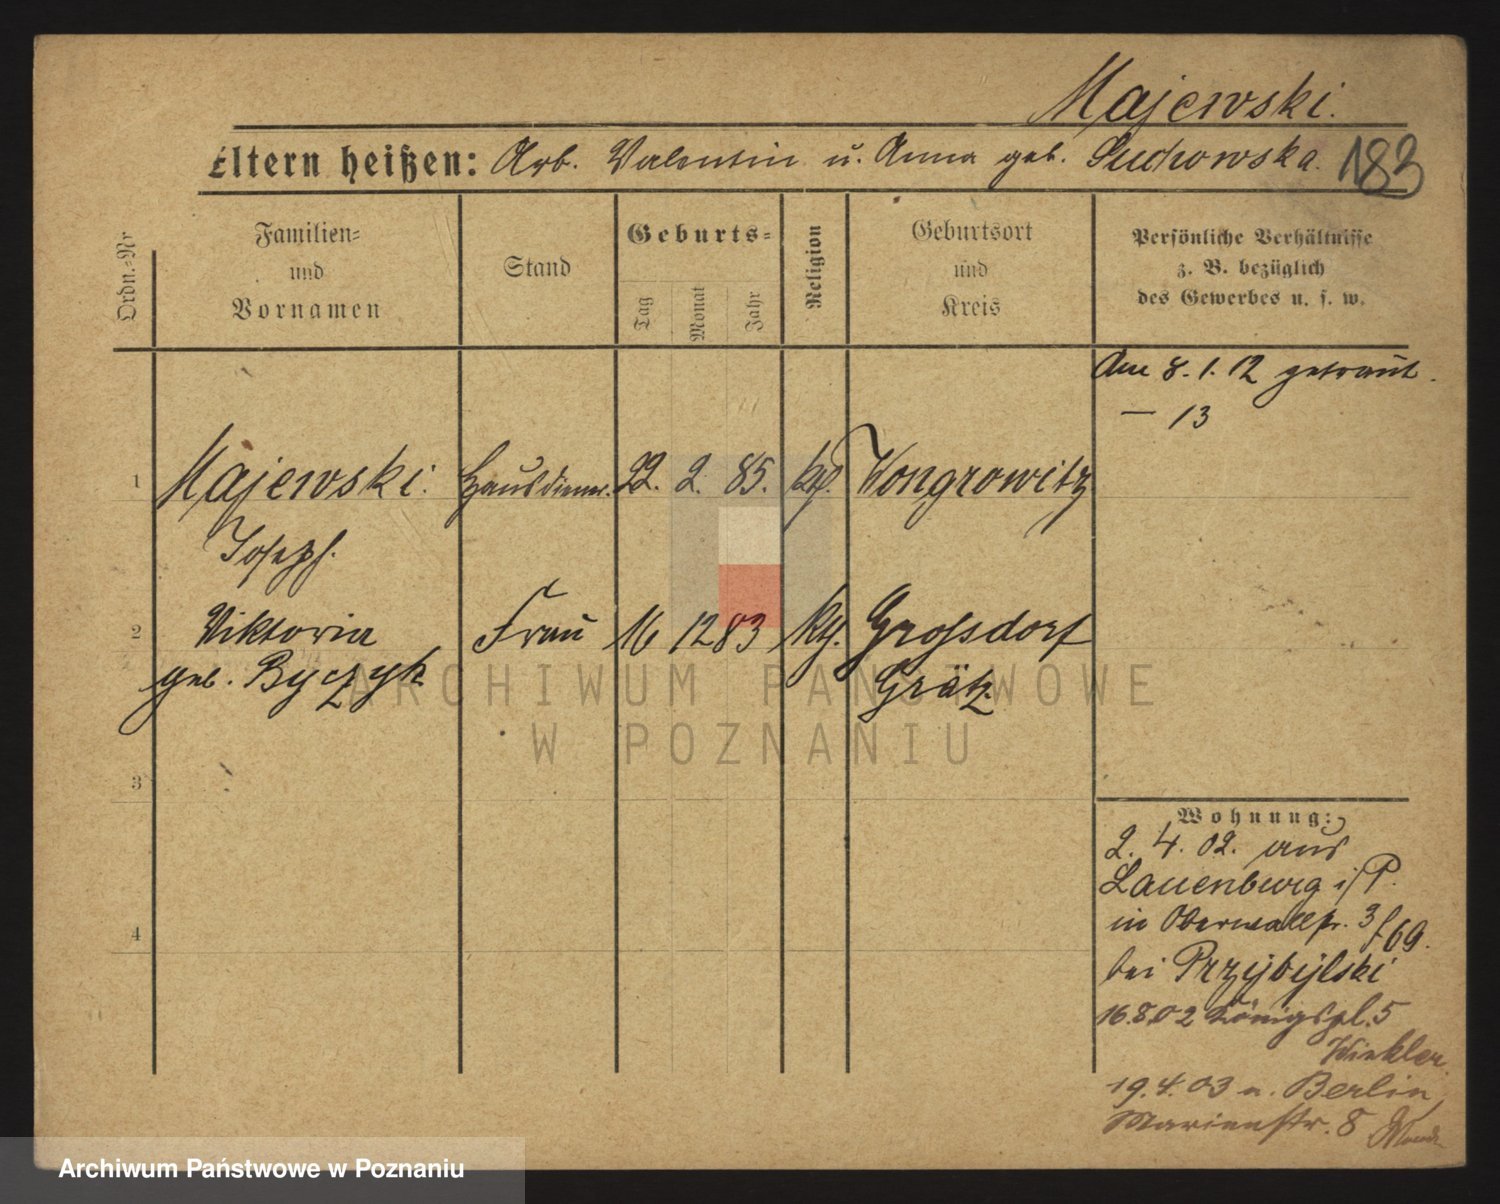 Majewski.
Eltern heißen: Arb. Valentin u. Anna geb. Suchowska. 183
Ordn.-Nr
Familien-
und
Vornamen
Stand
Geburts-
Tag
Monat
Jahr
Religion
Geburtsort
und
Kreis
Persönliche Verhältnisse
z. B. bezüglich
des Gewerbes u. s. w.
Am 8. 1. 12 getraut.
— 13
1 Majewski. Hausdiener. 22. 2. 85. kth. Wongrowitz
Joseph.
2 Viktoria Frau 16 12 83 kth. Grossdorf
geb. Byczyk Grätz
3
4
Wohnung:
2. 4. 02. aus
Lauenburg i/P.
in Oberwallstr. 3
f 69.
bei Przybylski
16.8.02 Königspl. 5
Winkler
19.4.03 n. Berlin,
Marienstr. 8
ARCHIWUM PAŃSTWOWE
W POZNANIU
Archiwum Państwowe w Poznaniu